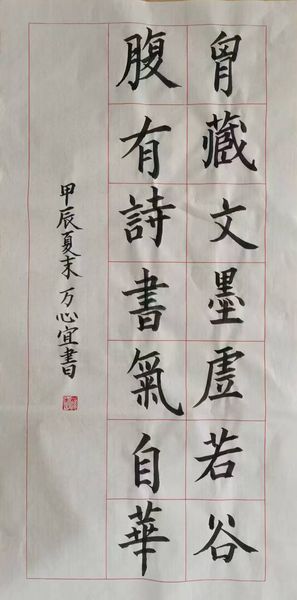 胷藏文墨虛若谷
腹有詩書氣自華
甲辰夏末万心宜書